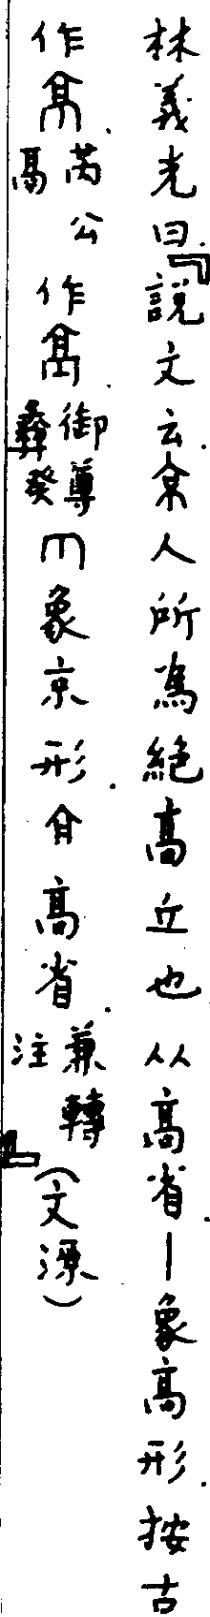 林義光曰.『說文云.京人所為絕高丘也从高省.丨象高形.按古
作𩫖.芮公鬲作𩫖.御尊彝癸冂象京形.㐭高省.兼轉注』(文源)